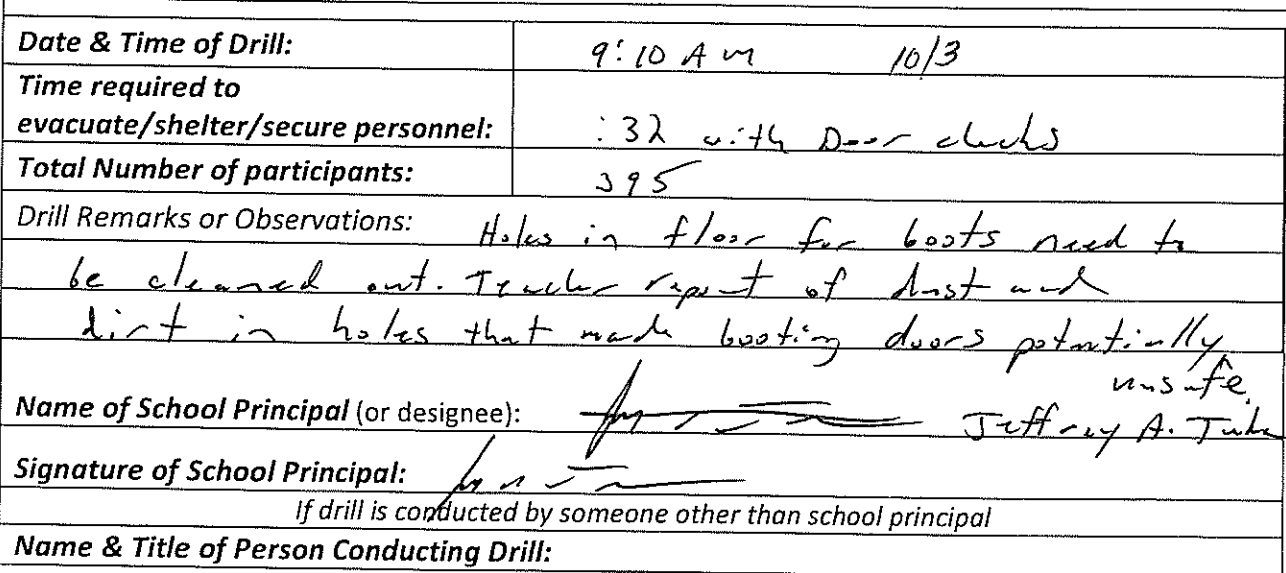 Date & Time of Drill: 9:10 AM 10/3
Time required to
evacuate/shelter/secure personnel: :32 with Door checks
Total Number of participants: 395
Drill Remarks or Observations: Holes in floor for boots need to
be cleaned out. Teacher report of dust and
dirt in holes that made booting doors potentially
unsafe.
Name of School Principal (or designee): Jeffrey A.
Signature of School Principal:
If drill is conducted by someone other than school principal
Name & Title of Person Conducting Drill: